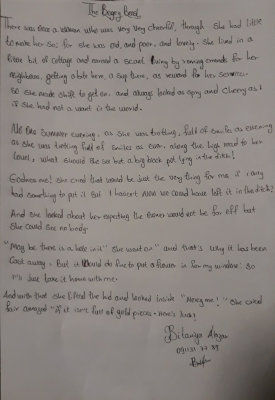 The Bogey Beast
There was once a woman who was very very cheerful, through she had little
to make her so; for she was old, and poor, and lonely. She lived in a
little bit of cottage and earned a scant living by running errands for her
neighbours, getting a bite here, a sup there, as reward for her services.
So she made shift to get on, and always looked as spry and cheery as if
she had not a want in the world.
Now one summer evening, as she was trotting, full of smiles as evening
as she was trotting full of smiles as ever, along the high road to her
hovel, what should she see but a big black pot lying in the ditch!
Goodness me! She cried that would be just the very thing for me if i only
had something to put it But I haven't Now who could have left it in the ditch?
And she looked about her expecting the owner would not be far off but
She could see nobody.
"May be there is a hole in it" She went on" and that's why it has been
Cast away. But it would do fine to put a flower in for my window: so
I'll Just take it home with me.
And with that she lifted the lid and looked inside "Mercy me!" She cried
fair amazed "If it isn't full of gold pieces. Here's luck!